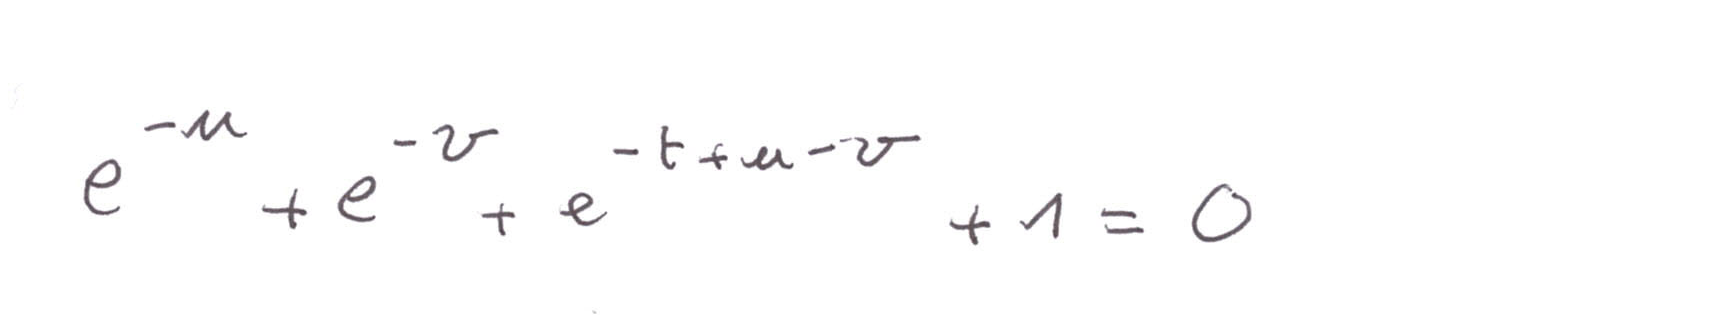 e^{-u} + e^{-v} + e^{-t+u-v} + 1 = 0